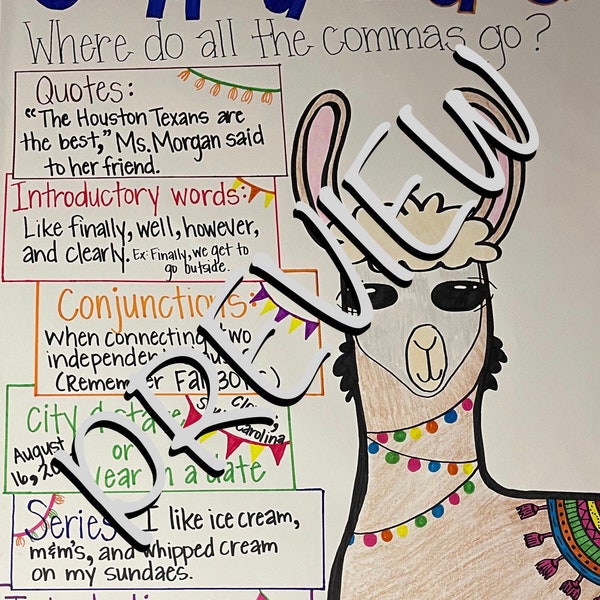 Where do all the commas go?
Quotes:
"The Houston Texans are
the best," Ms. Morgan said
to her friend.
Introductory words:
Like finally, well, however,
and clearly. Ex: Finally, we get to
go outside.
Conjunctions:
When connecting two
independent
(Remember
City
August
16,
or
year in a date
Series: I like ice cream,
m&m's, and whipped cream
on my sundaes.
PREVIEW